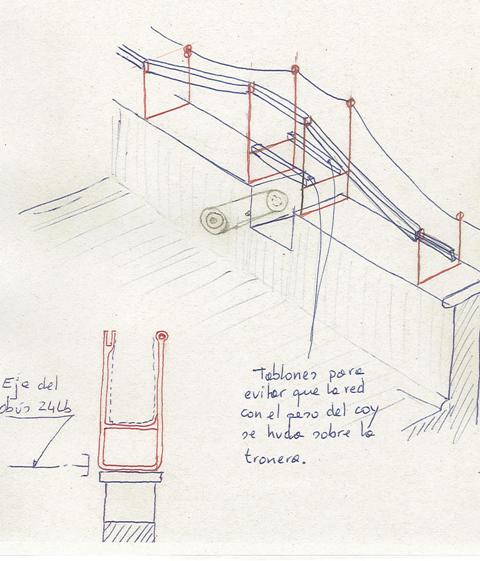 Tablones para
evitar que la red
con el peso del coy
se huda sobre la
tronera.
Eje del
obús 24Lb